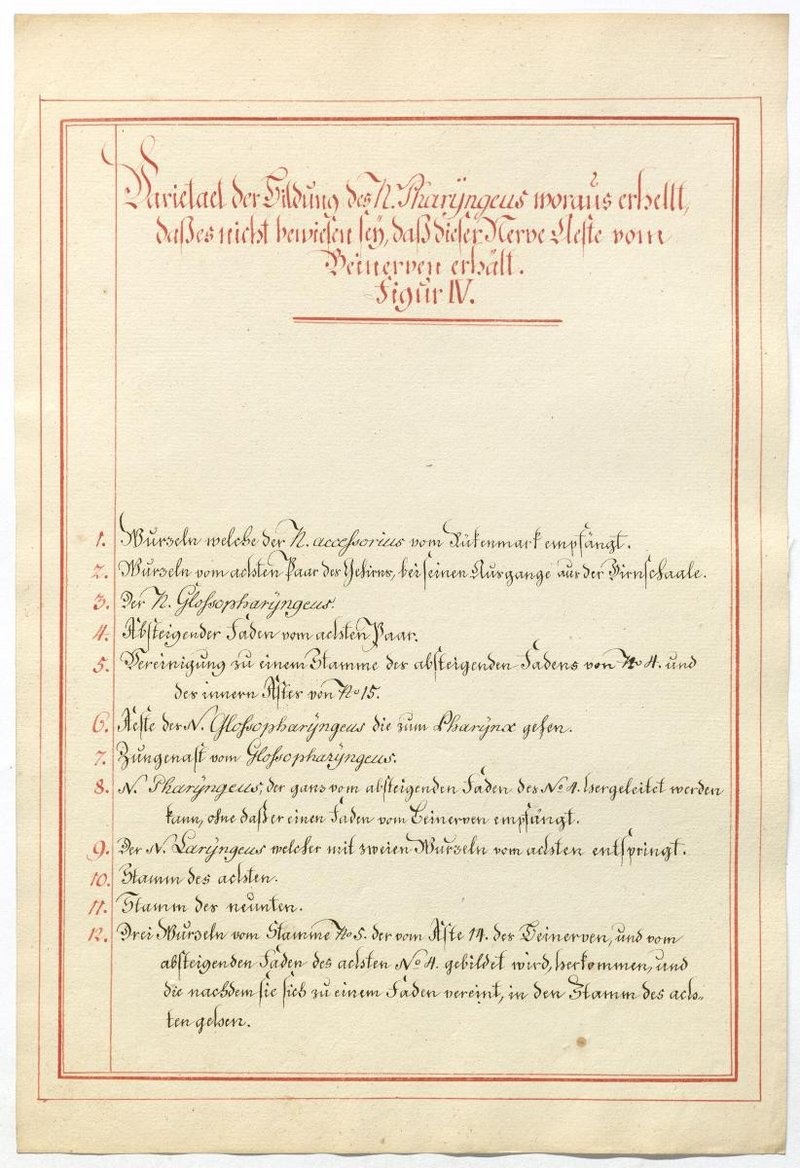 Varietaet der Bildung des N. Pharÿngeus woraus erhellt,
daß es nicht bewiesen seÿ, daß dieser Nerve Aeste vom
Beinerven erhält.
Figur IV.
1. Wurzeln welche der N. accessorius vom Rükenmark empfängt.
2. Wurzeln vom achten Paar des Gehirns, bei seinen Ausgange aus der Hirnschaale.
3. Der N. Glossopharÿngeus.
4. Absteigender Faden vom achten Paar.
5. Vereinigung zu einem Stamme des absteigenden Fadens von No 4. und
des innern Astes von No 15.
6. Aeste des N. Glossopharÿngeus die zum Pharÿnx gehen.
7. Zungenast vom Glossopharÿngeus.
8. N. Pharÿngeus, der ganz vom absteigenden Faden des No 4. hergeleitet werden
kann, ohne daß er einen Faden vom Beinerven empfängt.
9. Der N. Larÿngeus welcher mit zweien Wurzeln vom achten entspringt.
10. Stamm des achten.
11. Stamm des neunten.
12. Drei Wurzeln vom Stamme No 5. der vom Aste 14. des Beinerven, und vom
absteigenden Faden des achten No 4. gebildet wird, herkommen, und
die nachdem sie sich zu einem Faden vereint, in den Stamm des ach-
ten gehen.